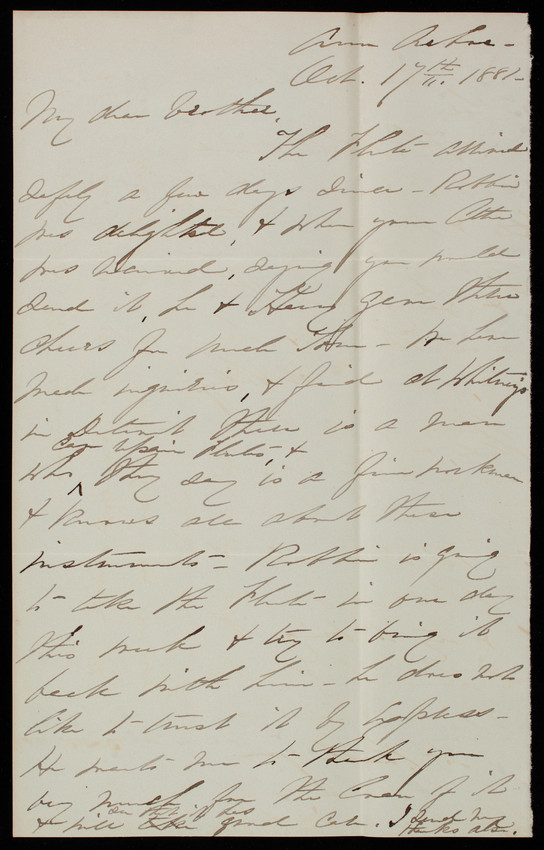 Ann Arbor -
Oct. 17th 1881 -
My dear brother,
The Flute arrived
safely a few days since - Robbie
was delighted, & when your letter
was received, saying you would
send it, he & Harry gave three
cheers for Uncle Thom - We have
made inquiries, & find at Whitney's
in Detroit there is a man
can repair flutes, &
who ^ they say is a fine workman
& knows all about these
instruments - Robbie is going
to take the Flute in one day
this week & try to bring it
back with him - he does not
like to trust it by Express -
He wants me to thank you
very much for the loan of it
& will take good care. I send my
thanks also.